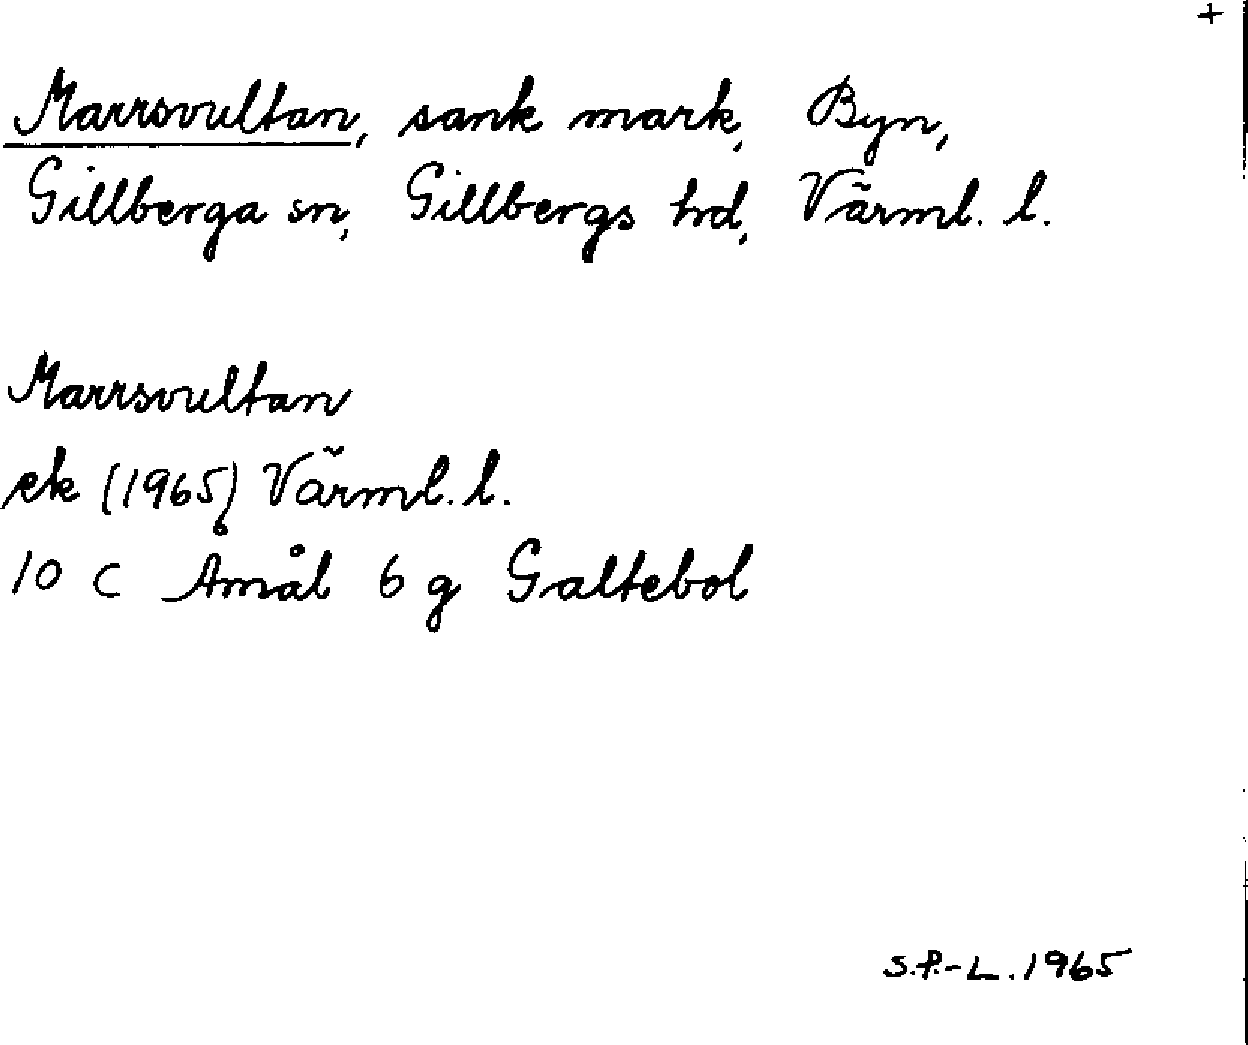 +
Marrsvultan, sank mark, Byn,
Gillberga sn, Gillbergs hd, Värml. l.
Marrsvultan
ek (1965) Värml. l.
10 C Åmål 6 g Galtebol
S.P.-L. 1965